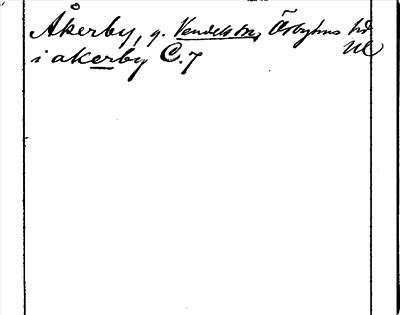 Åkerby, g. Vendels sn, Örbyhus hd Ul
i akerby C. 7